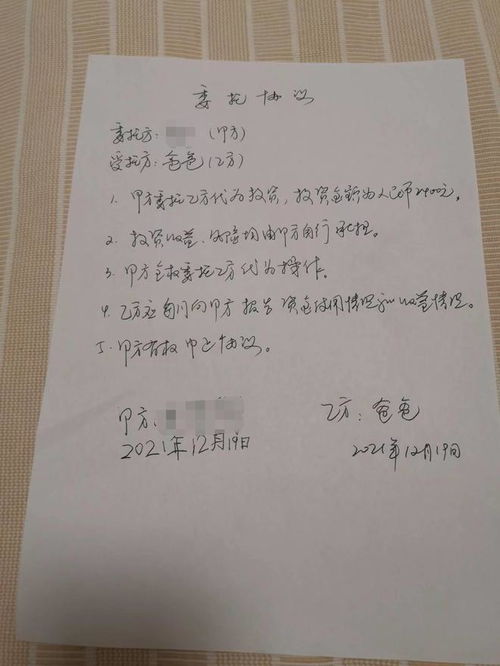 委托协议
委托方: (甲方)
受托方:爸爸(乙方)
1. 甲方委托乙方代为投资,投资金额为人民币2400元。
2. 投资收益、风险均由甲方自行承担。
3. 甲方全权委托乙方代为操作。
4. 乙方应每月向甲方报告资金使用情况和收益情况。
5. 甲方有权中止协议。
甲方: 乙方:爸爸
2021年12月19日 2021年12月19日